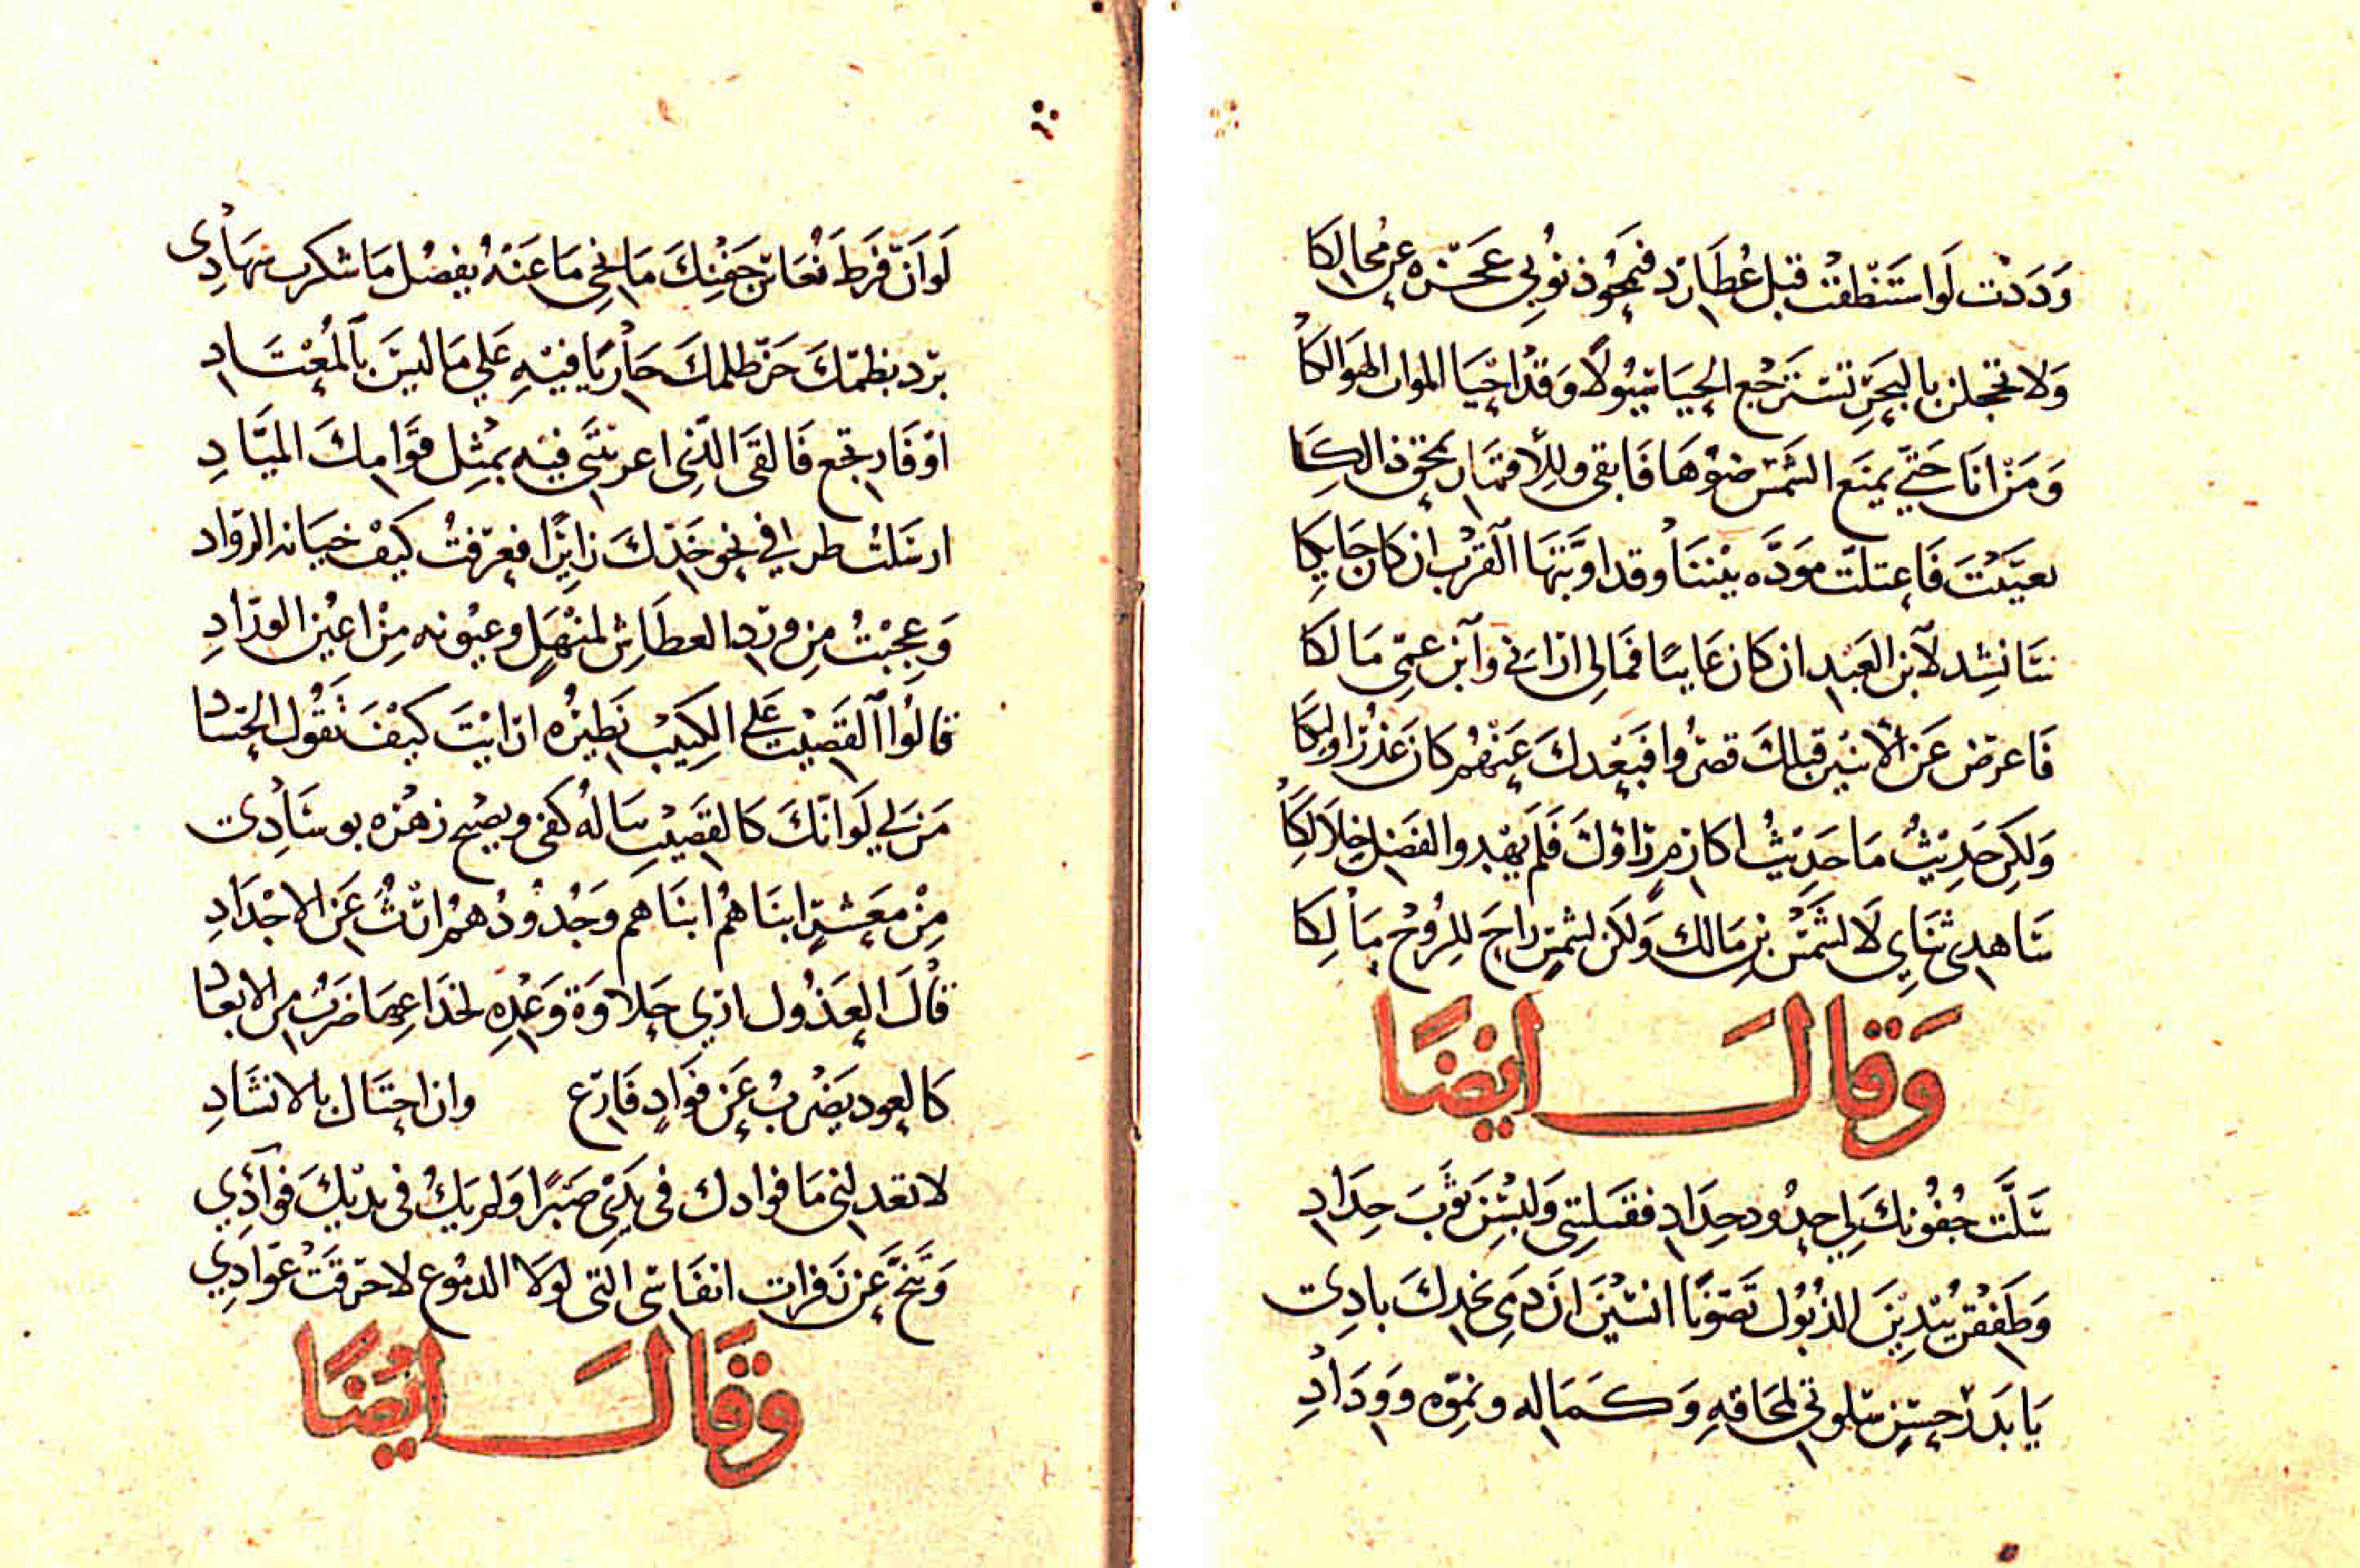 وَدَدْت لَوا سْتَنْطَفْتُ قبل عُطَارْد فيَمحُو ذنُوبِي عَن مُحالكا
وَلا تجعلن بالبحَرِ تسْتَرجْع الحيَا سُيُولاً وَقدْ احْيَا الموات الهَوَالكَا
وَمَنْ انَا حَتَّى يمنَع الشمْسَ ضوْهَا فَابقى وللأقمَار
فَاعتلَّت موَدَّه بيْننَا وقد اوَّبَتهَا القرْب ان كان جَابكا
سَانشِد لآبن العَبْد ان كان غايبًا فمَالِى ارَانى وآبن عمِّى مَالكَا
فَاعرض عَن الأنين قبلك قصرُوا فبَعْدكَ عَنْهُم كانَ عذرًا
وَلكِن حَدِيْثٌ مَا حَدِيْثُ اكارم رَاوْكَ فَلَم يهْبدوا الفضْل
سَاهدِى ثنَايِ لَا لشَمْس بن مَالك وَلكن لشمْسٍ رَاحَ للرُوحْ مَالِكا
وَقالَ ايضًا
سَلَّت جُفُونكَ لِي حدُود حِدَادِ فقتلتِنى وَلبِسْنَ ثوْبَ حِدَادِ
وَطفِقْنَ يُبْدِيْنَ الذُبُول تَصَوّنًا انسْيْنَ انَّ دَمِى بخدِكَ بادِى
يَا بَدْرَ حسْنٍ سَلوتي لمحَاقهِ وَكمَاله ونموّه وَودَادِ
لَوانَّ فَرَط نُعَاسِ جَفْنِكَ مَا نخِى مَا عَنْهُ يفضُل مَا شكرت سهَادِى
برّد بظلمكَ حَرّ ظلمكَ جَايرًا فيْهِ عَلي مَا ليْسَ بآلمُعْتَادِ
اوْ فَارتجع فَالقَى الَّذِى فيْه بمثِل قوَامِكَ الميَّادِ
ارسَلتُ طرفي نحو خَدّكَ زايِرًا فعرّفتُ كيْفَ خيَانه الروّاد
وَعجِبْتُ مِن ورْد العطَاش لمنْهَلٍ وعيُونه مِنْ اعيُن الورّادِ
قالوُا القضِيْب عَلى الكثِيْب نَظِيْرُه ارَايْتَ كيْفَ تَقُول الحسّاد
مَن لِي لَوانّكَ كالقضِيْبِ سَالهُ كفى ويصْبح زهْره بوسَادِى
مِنْ مَعَشرٍ ابنَاهُم ابنَاهم وَجُدُودُهمْ ارْثُ عَن الاجْدَادِ
قَالَ العَذُول ارَي حَلاوَة وَعْدِهِ لخدَاعِهَا ضَرْبٌ من الابعاد
كالعود يَضْربُ عَن فوَادٍ فارَغ وان احتَال بالانشَادِ
لا تعدلنى مَا فوادك فى يَدَىْ صَبْرًا وَلم يَكُ فى يديْكَ فوآدِي
وَتَنَحَّ عَن زَفرات انفاسى التى لولَا الدمُوع لاحرَقتْ عُوادِي
وقَالَ ايْضًا